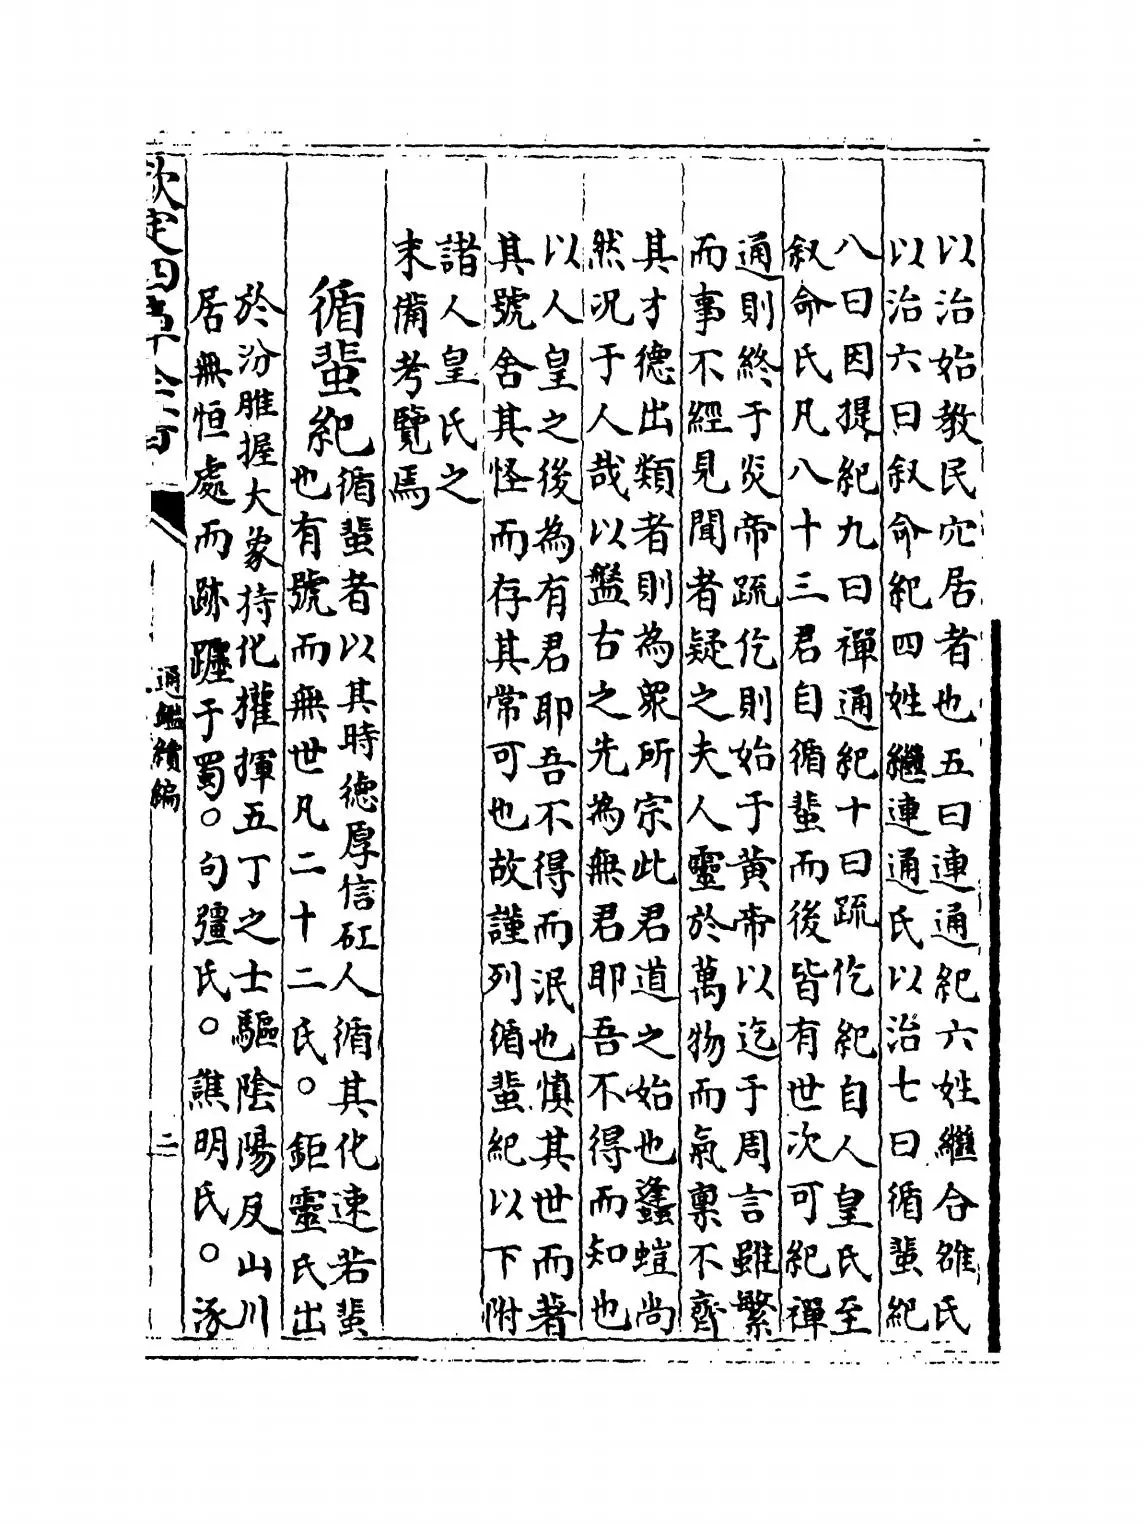 以治始教民穴居者也五曰連通紀六姓繼合雒氏
以治六曰叙命紀四姓繼連通氏以治七曰循蜚紀
八曰因提紀九曰禪通紀十曰疏仡紀自人皇氏至
叙命氏凡八十三君自循蜚而後皆有世次可紀禪
通則終于炎帝疏仡則始于黄帝以迄于周言雖繁
而事不經見聞者疑之夫人靈於萬物而氣稟不齊
其才德出類者則為衆所宗此君道之始也蠭螘尚
然况于人哉以盤古之先為無君耶吾不得而知也
以人皇之後為有君耶吾不得而泯也慎其世而著
其號舍其怪而存其常可也故謹列循蜚紀以下附
諸人皇氏之
末備考覽焉
循蜚紀
循蜚者以其時德厚信矼人循其化速若蜚
也有號而無世凡二十二氏○鉅靈氏出
於汾脽握大象持化權揮五丁之士驅陰陽反山川
居無恒處而跡躔于蜀○句彊氏○譙明氏○涿
欽定四庫全書
通鑑續編
二